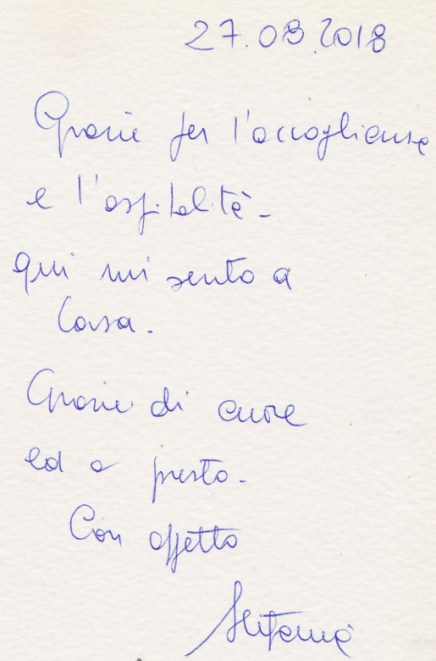 27.08.2018
Grazie per l'accoglienza
e l'ospitalità -
qui mi sento a
Casa.
Grazie di cuore
ed a presto.
Con affetto
Stefania